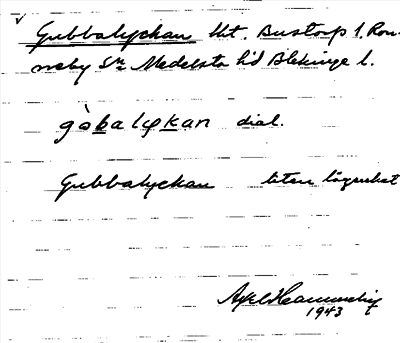 Gubbalyckan lht. Bustorp 1. Ron-
neby Sn Medelsta hd Blekinge l.
gòbalykan dial.
Gubbalyckan liten lägenhet
Axel
1943